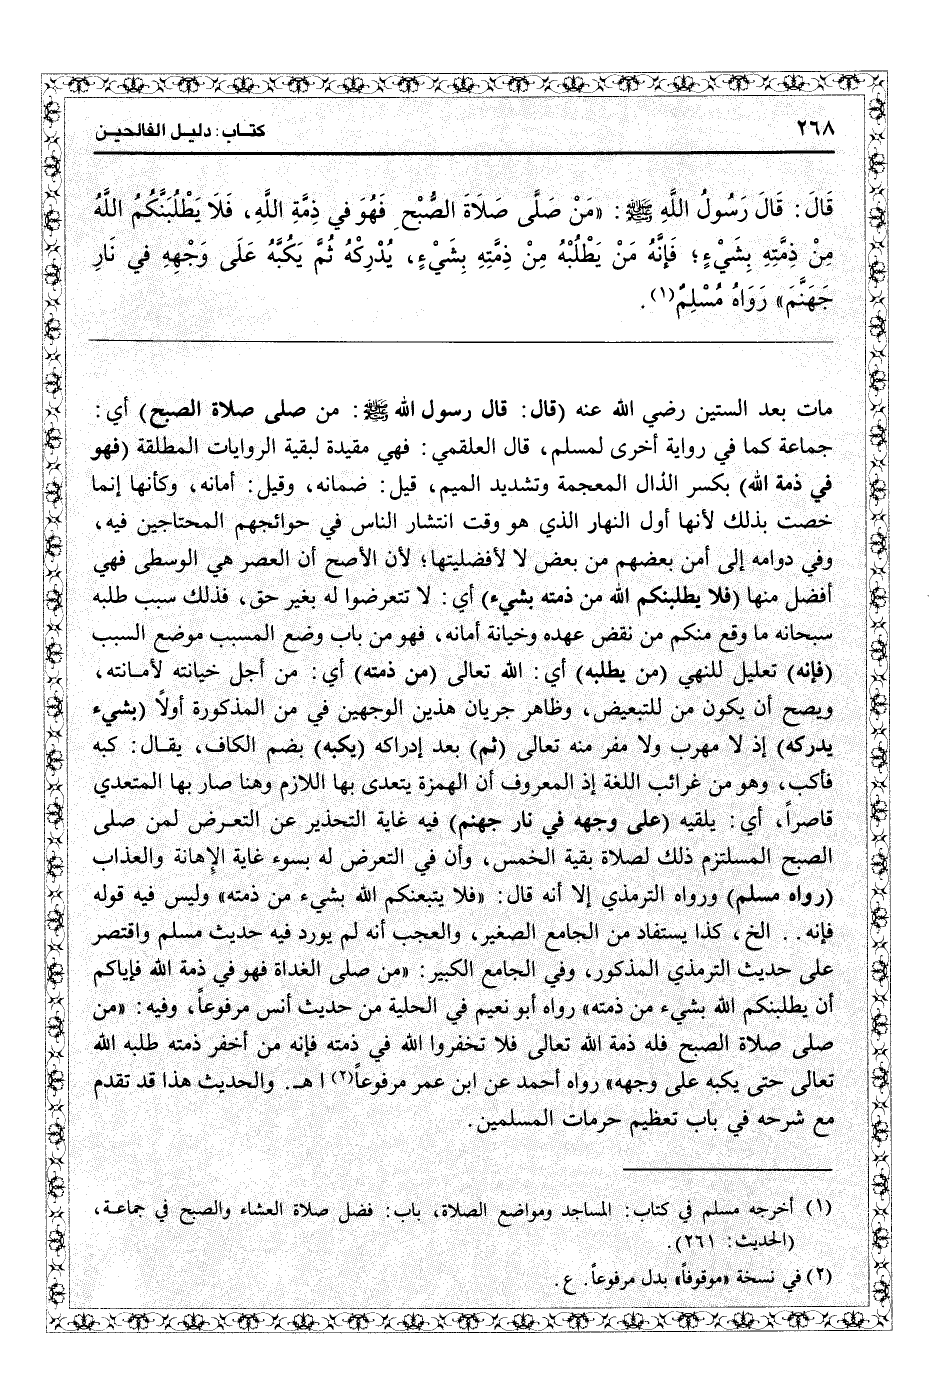 ٢٦٨ كتاب: دليل الفالحين
قَالَ: قَالَ رَسُولُ اللَّهِ ﷺ: «مَنْ صَلَّى صَلَاةَ الصُّبْحِ فَهُوَ فِي ذِمَّةِ اللَّهِ، فَلَا يَطْلُبَنَّكُمُ اللَّهُ
مِنْ ذِمَّتِهِ بِشَيْءٍ؛ فَإِنَّهُ مَنْ يَطْلُبْهُ مِنْ ذِمَّتِهِ بِشَيْءٍ، يُدْرِكْهُ ثُمَّ يَكُبَّهُ عَلَى وَجْهِهِ فِي نَارِ
جَهَنَّمَ» رَوَاهُ مُسْلِمٌ(١).
مات بعد الستين رضي الله عنه (قال: قال رسول الله ﷺ: من صلى صلاة الصبح) أي:
جماعة كما في رواية أخرى لمسلم، قال العلقمي: فهي مقيدة لبقية الروايات المطلقة (فهو
في ذمة الله) بكسر الذال المعجمة وتشديد الميم، قيل: ضمانه، وقيل: أمانه، وكأنها إنما
خصت بذلك لأنها أول النهار الذي هو وقت انتشار الناس في حوائجهم المحتاجين فيه،
وفي دوامه إلى أمن بعضهم من بعض لا لأفضليتها؛ لأن الأصح أن العصر هي الوسطى فهي
أفضل منها (فلا يطلبنكم الله من ذمته بشيء) أي: لا تتعرضوا له بغير حق، فذلك سبب طلبه
سبحانه ما وقع منكم من نقض عهده وخيانة أمانه، فهو من باب وضع المسبب موضع السبب
(فإنه) تعليل للنهي (من يطلبه) أي: الله تعالى (من ذمته) أي: من أجل خيانته لأمانته،
ويصح أن يكون من للتبعيض، وظاهر جريان هذين الوجهين في من المذكورة أولاً (بشيء
يدركه) إذ لا مهرب ولا مفر منه تعالى (ثم) بعد إدراكه (يكبه) بضم الكاف، يقال: كبه
فأكب، وهو من غرائب اللغة إذ المعروف أن الهمزة يتعدى بها اللازم وهنا صار بها المتعدي
قاصراً، أي: يلقيه (على وجهه في نار جهنم) فيه غاية التحذير عن التعرض لمن صلى
الصبح المستلزم ذلك لصلاة بقية الخمس، وأن في التعرض له بسوء غاية الإِهانة والعذاب
(رواه مسلم) ورواه الترمذي إلا أنه قال: «فلا يتبعنكم الله بشيء من ذمته» وليس فيه قوله
فإنه.. الخ، كذا يستفاد من الجامع الصغير، والعجب أنه لم يورد فيه حديث مسلم واقتصر
على حديث الترمذي المذكور، وفي الجامع الكبير: «من صلى الغداة فهو في ذمة الله فإياكم
أن يطلبنكم الله بشيء من ذمته» رواه أبو نعيم في الحلية من حديث أنس مرفوعاً، وفيه: «من
صلى صلاة الصبح فله ذمة الله تعالى فلا تخفروا الله في ذمته فإنه من أخفر ذمته طلبه الله
تعالى حتى يكبه على وجهه» رواه أحمد عن ابن عمر مرفوعاً(٢) اهـ. والحديث هذا قد تقدم
مع شرحه في باب تعظيم حرمات المسلمين.
(١) أخرجه مسلم في كتاب: المساجد ومواضع الصلاة، باب: فضل صلاة العشاء والصبح في جماعة،
(الحديث: ٢٦١).
(٢) في نسخة «موقوفاً» بدل مرفوعاً. ع.